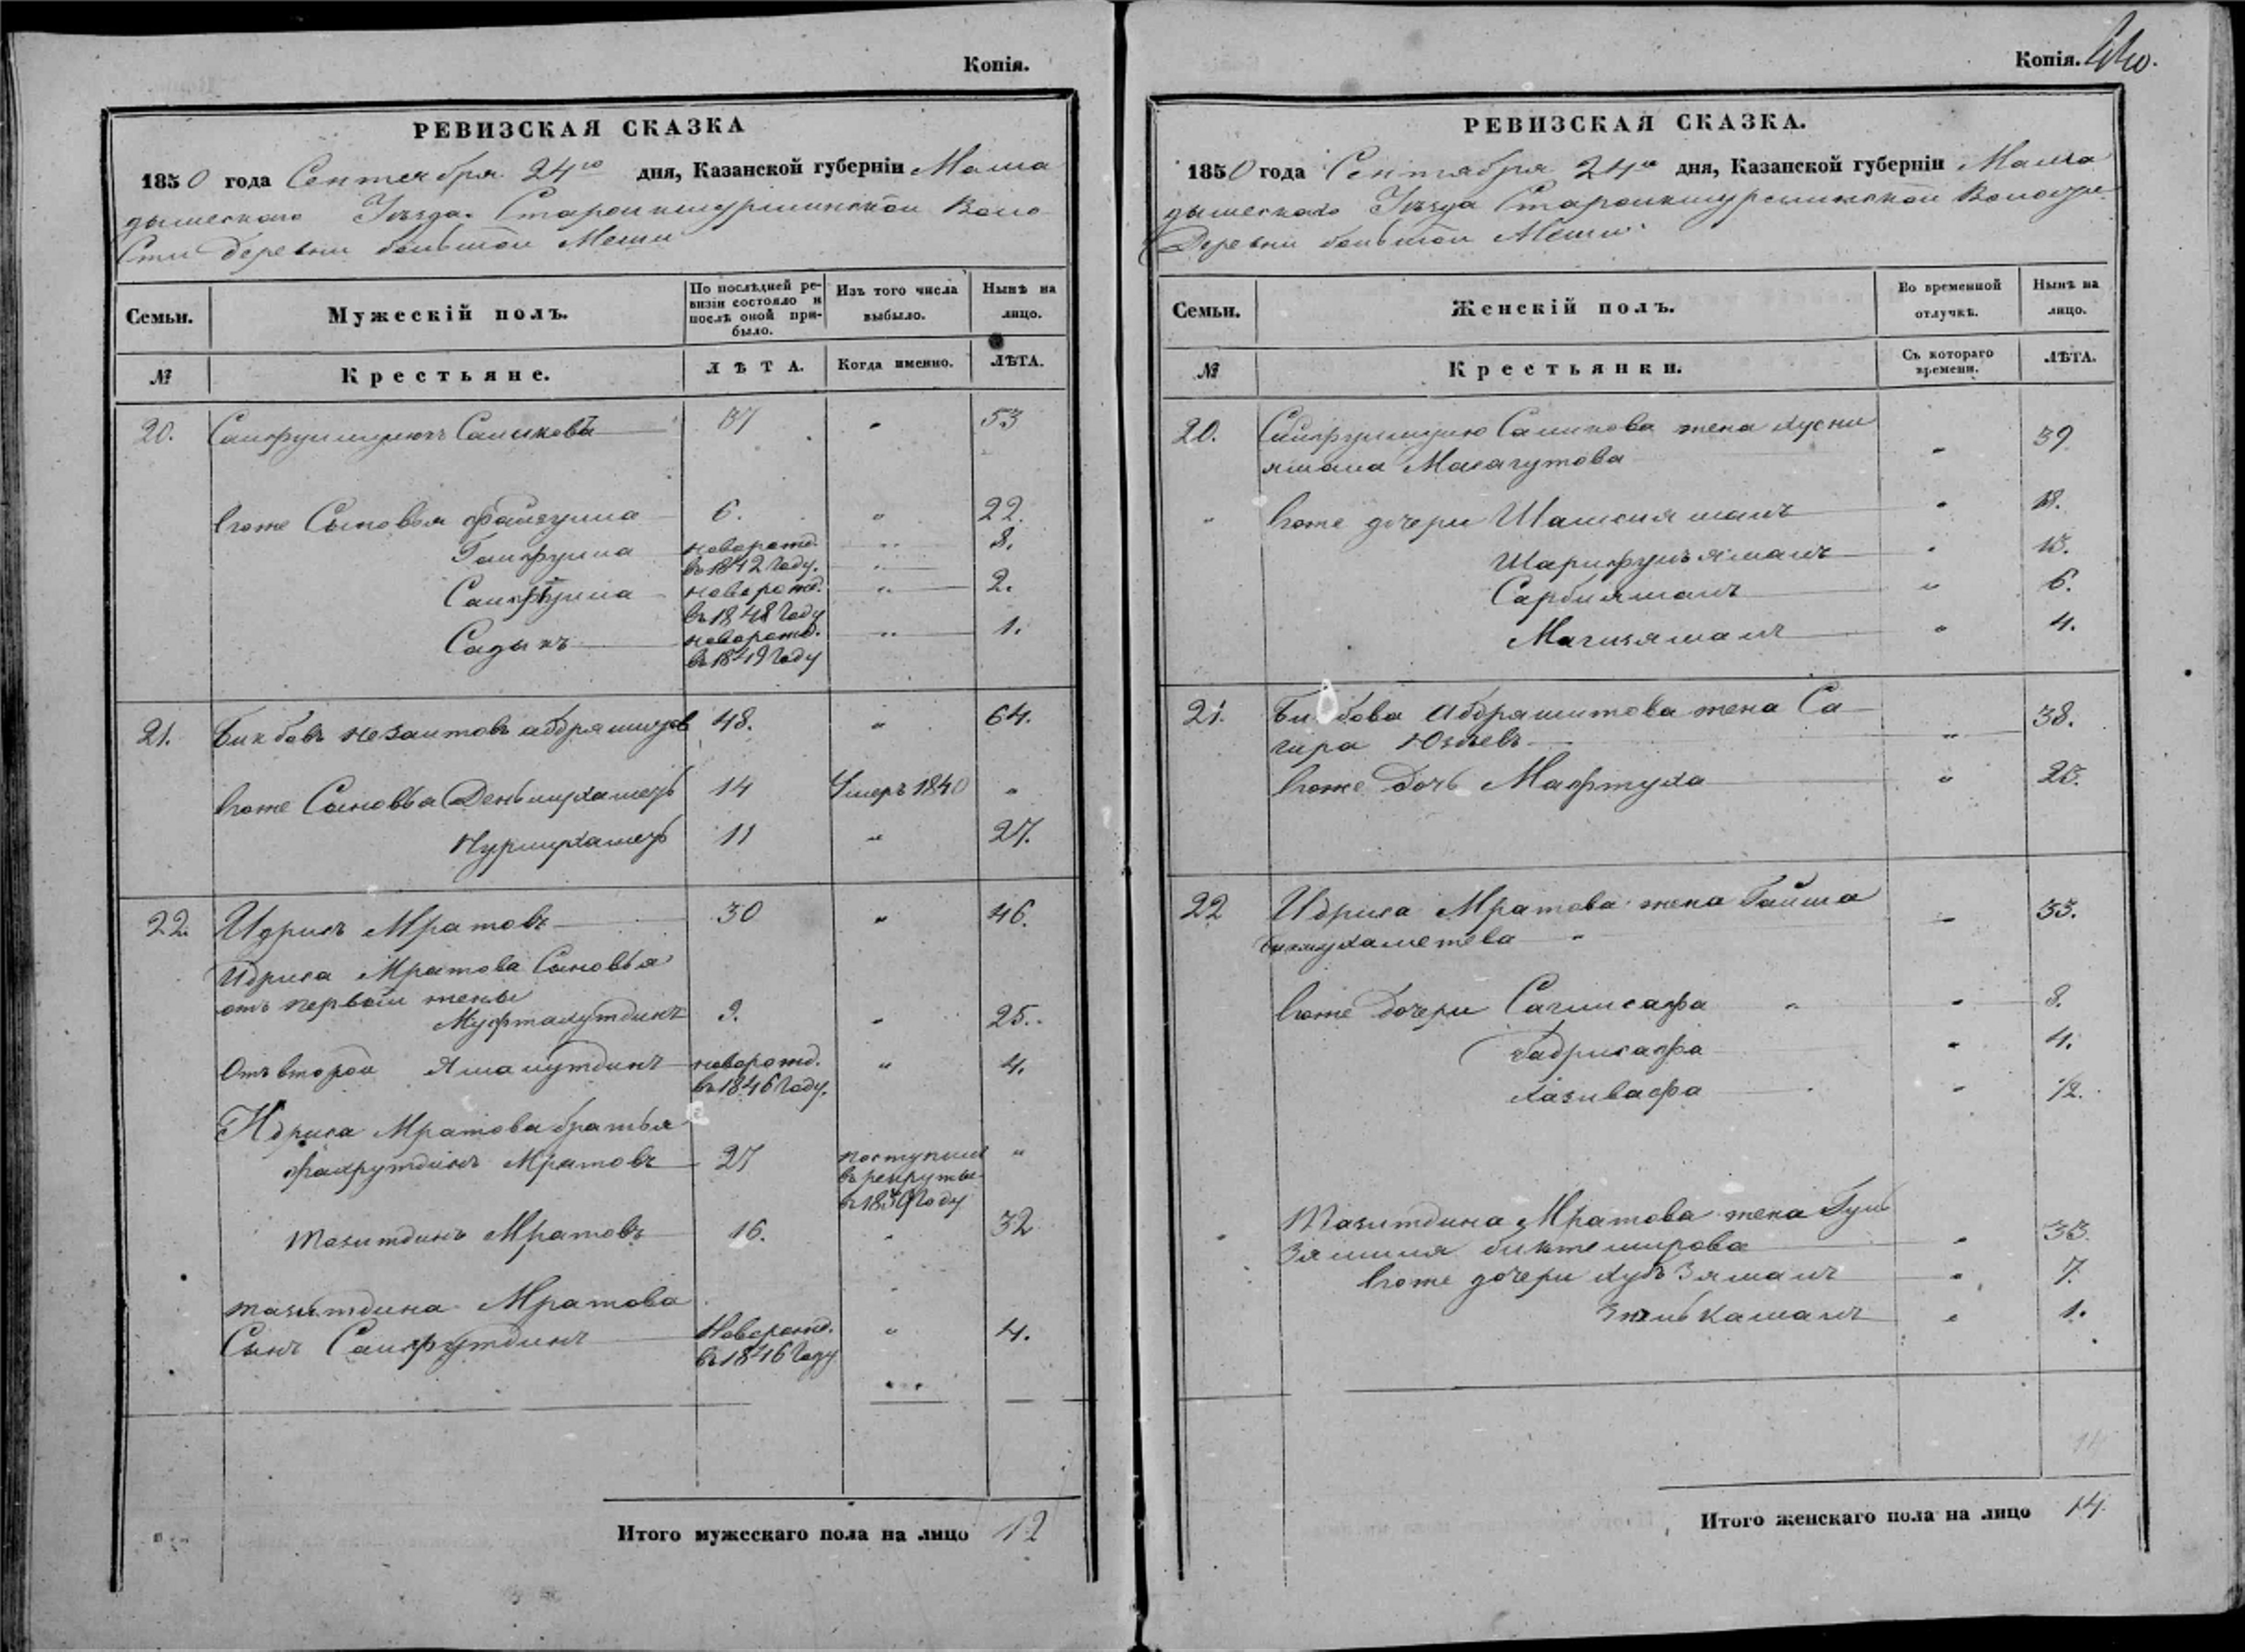 Копія.
РЕВИЗСКАЯ СКАЗКА
1850 года Сентября 24го дня, Казанской губерніи Мама
дышескаго Уѣзда. Воло
сти деревни большой Меши
Семьи. Мужескій полъ. По послѣдней ре-
визіи состояло и
послѣ оной при-
было. Изъ того числа
выбыло. Нынѣ на
лицо.
№ Крестьяне. ЛѢТА. Когда именно. ЛѢТА.
20. 37 " 53
Его же Сыновья Файзулла 6. " 22.
Гайфулла новорожд. " 8.
въ 1842 Году.
Сайфулла новорожд. " 2.
въ 1848 Году
Садыкъ новорожд. " 1.
въ 1849 Году
21. 48. " 64.
Его же Сыновья Деньмухаметъ 14 Умеръ 1840 "
Нурмухаметъ 11 " 27.
22. Идрисъ Мратовъ 30 " 46.
Идриса Мратова Сыновья
отъ первой жены
Муфтахутдинъ 9. " 25.
Отъ второй Ямалутдинъ новорожд. " 4.
въ 1846 Году.
Идриса Мратова братья
Фахрутдинъ Мратовъ 27 поступилъ "
въ рекруты
Тазитдинъ Мратовъ 16. " 32
Тазитдина Мратова
Сынъ Сайфутдинъ Новорожд. " 4.
въ 1846 Году
Итого мужескаго пола на лицо 12
Копія.
РЕВИЗСКАЯ СКАЗКА.
1850 года Сентября 24го дня, Казанской губерніи Мама
дышескаго Уѣзда Волости
Деревни большой Меши.
Семьи. Женскій полъ. Во временной
отлучкѣ. Нынѣ на
лицо.
№ Крестьянки. Съ котораго
времени. ЛѢТА.
20. жена Хусни
ямала Масагутова " 39
" Его же дочери " 18.
Шарифулъямалъ " 13.
Сарбиямалъ " 6.
Магизямалъ " 4.
21. Абдряшитова жена Са
гира " 38.
Его же Дочь Мафтуха " 25.
22 Идриса Мратова жена Гайша
Бикмухаметева " 33.
Его же Дочери Сагилсафа " 8.
Бадрисафа " 4.
Хазивафа " 1/2.
" Тазитдина Мратова жена Гуль
Зямиля Биктемирова " 33.
Его же дочери " 7.
" 1.
14
Итого женскаго пола на лицо 14.